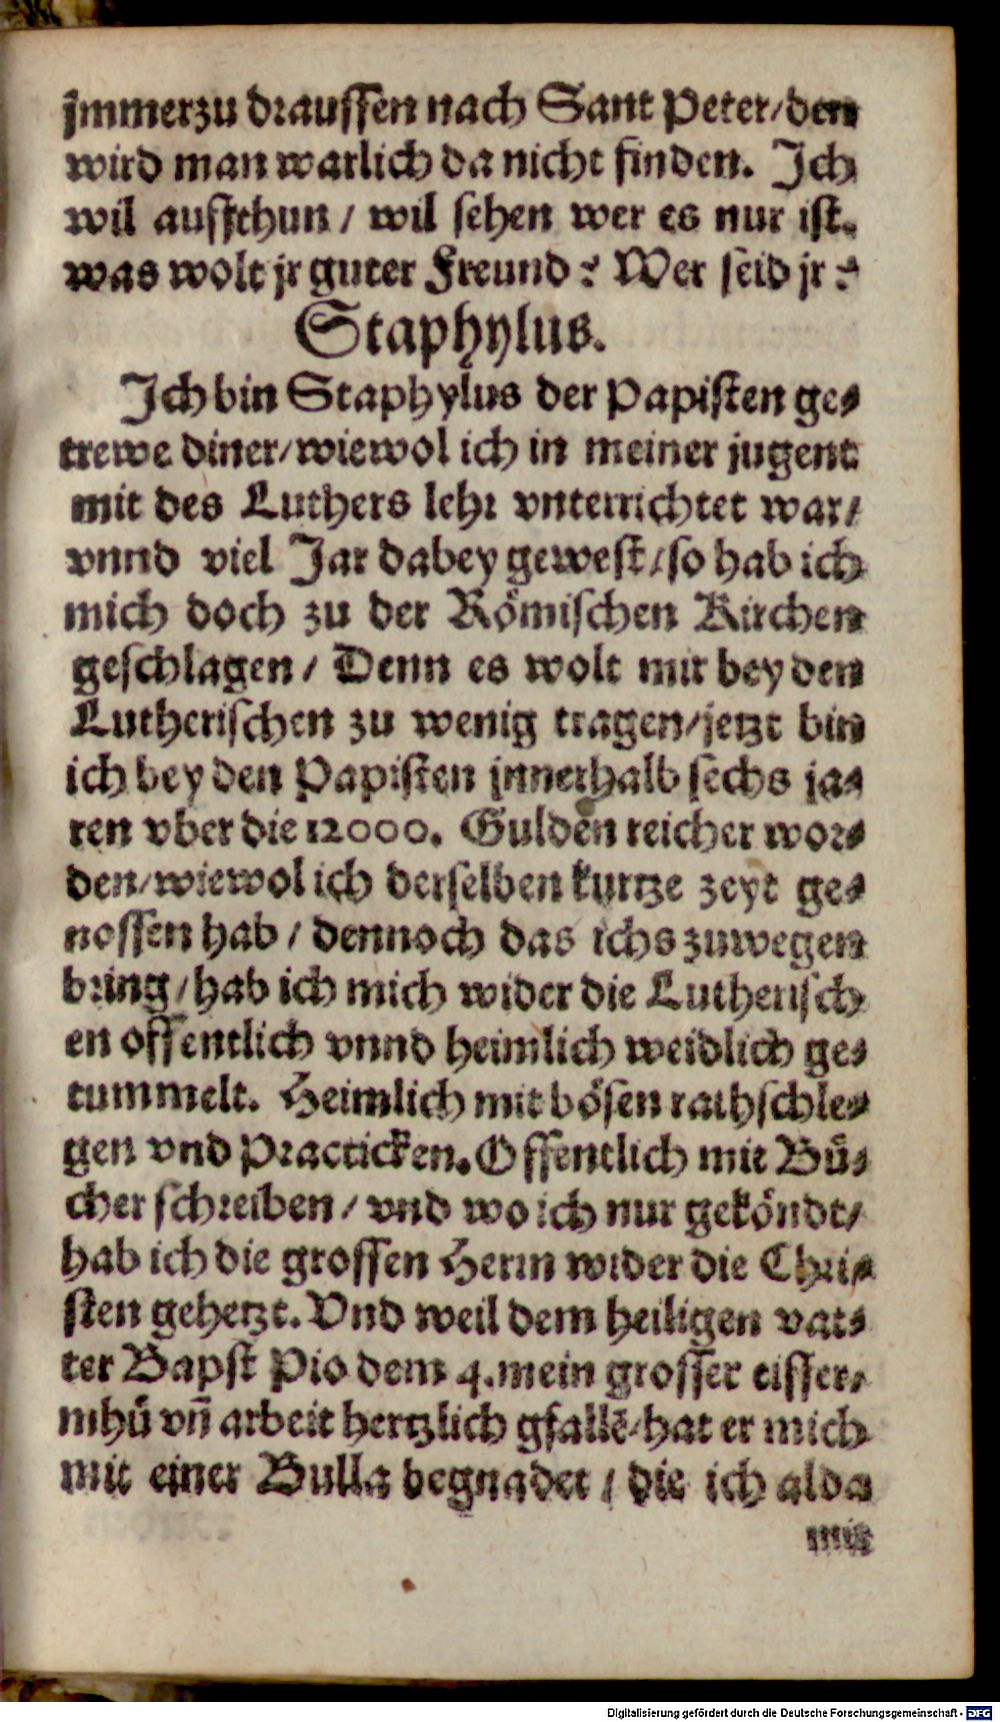 jmmerzu draussen nach Sant Peter/den
wird man warlich da nicht finden. Ich
wil auffthun / wil sehen wer es nur ist.
was wolt jr guter Freund? Wer seid jr?
Staphylus.
Ich bin Staphylus der Papisten ge⸗
trewe diner/wiewol ich in meiner jugent
mit des Luthers lehr vnterrichtet war/
vnnd viel Jar dabey gewest/so hab ich
mich doch zu der Römischen Kirchen
geschlagen / Denn es wolt mir bey den
Lutherischen zu wenig tragen/jetzt bin
ich bey den Papisten jnnerhalb sechs ja⸗
ren vber die 12000. Gulden reicher wor⸗
den/wiewol ich derselben kurtze zeyt ge⸗
nossen hab / dennoch das ichs zuwegen
bring/hab ich mich wider die Lutherisch
en offentlich vnnd heimlich weidlich ge⸗
tummelt. Heimlich mit bösen rathschle⸗
gen vnd Practicken. Offentlich mit Bü⸗
cher schreiben / vnd wo ich nur geköndt/
hab ich die grossen Herrn wider die Chri⸗
sten gehetzt. Vnd weil dem heiligen vat⸗
ter Bapst Pio dem 4. mein grosser eiffer/
mhü vñ arbeit hertzlich gfallē/hat er mich
mit einer Bulla begnadet / die ich alda
mit
Digitalisierung gefördert durch die Deutsche Forschungsgemeinschaft - DFG